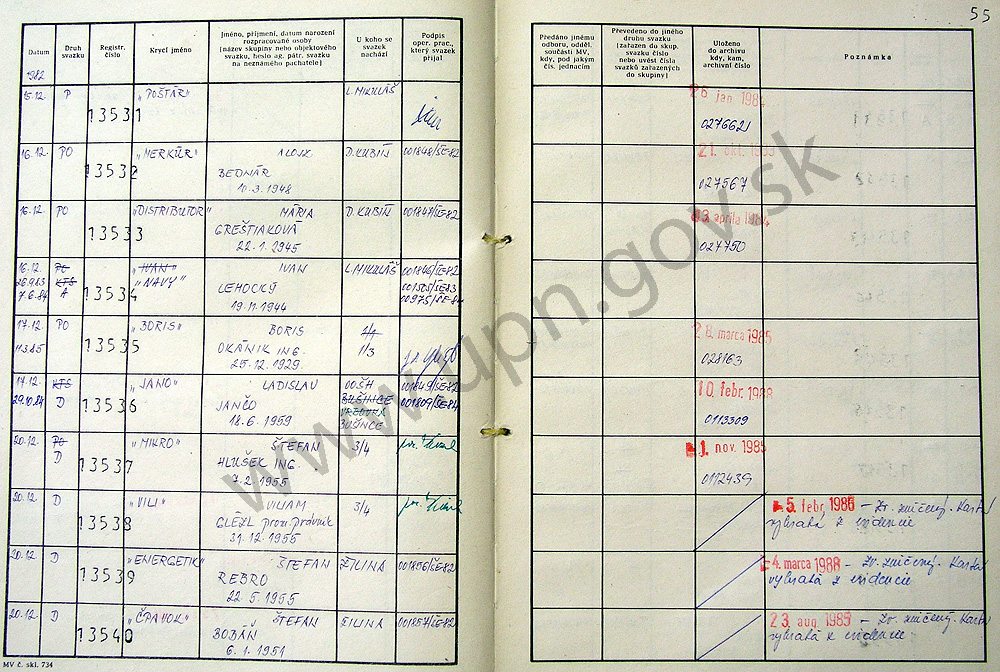 55
Datum
Druh svazku
Registr. číslo
Krycí jméno
Jméno, příjmení, datum narození rozpracované osoby (název skupiny nebo objektového svazku, heslo ag. pátr. svazku na neznámého pachatele)
U koho se svazek nachází
Podpis oper. prac., který svazek přijal
Předáno jinému odboru, odděl. součásti MV, kdy, pod jakým čís. jednacím
Převedeno do jiného druhu svazku (zařazen do skup. svazku číslo nebo uvést čísla svazků zařazených do skupiny)
Uloženo do archivu kdy, kam, archivní číslo
Poznámka
1982
15.12. P 13531 "POŠTÁR" L.MIKULÁŠ
26 jan 1984
0276621
16.12. PO 13532 "MERKÚR" ALOJZ D.KUBÍN 001848/ŠE-82
BEDNÁR
10.3.1948
21. okt. 1983
027567
16.12. PO 13533 "DISTRIBUTOR" MÁRIA D.KUBÍN 001847/ŠE-82
GREŠTIAKOVÁ
22.1.1945
13 apríla 1984
027750
16.12. PO 13534 "IVAN" IVAN L.MIKULÁŠ 001846/ŠE-82
26.9.83 KTS "NAVY" LEHOCKÝ 001505/ŠE-83
7.6.84 A 19.11.1944 00975/ŠE-84
17.12. PO 13535 "BORIS" BORIS 1/1
11.3.85 OKÁNIK ING. 11/3
25.12.1929
28 marca 1985
028163
17.12. KTS 13536 "JANO" LADISLAV OOŠH 001849/ŠE-82
29.10.84 D JANČO BUŠINCE 001809/ŠE-84
18.6.1959 BUŠINCE
10. febr. 1988
0113309
20.12. PO 13537 "MIKRO" ŠTEFAN 3/4
D HLUŠEK ING.
7.2.1955
1. nov. 1985
0112439
20.12. D 13538 "VILI" VILIAM 3/4
GLÉZL prom. právnik
31.12.1955
5. febr. 1986 - Zv. zničený. Karta
vybratá z evidencie
20.12. D 13539 "ENERGETIK" ŠTEFAN ŽILINA 001856/ŠE-82
REBRO
22.5.1955
4. marca 1988 - Zv. zničený. Karta
vybratá z evidencie
20.12. D 13540 "ČPAVOK" ŠTEFAN ŽILINA 001857/ŠE-82
BOBÁŇ
6.1.1951
23 aug. 1985 - Zv. zničený. Karta
vybratá z evidencie
MV č. skl. 734
www.upn.gov.sk